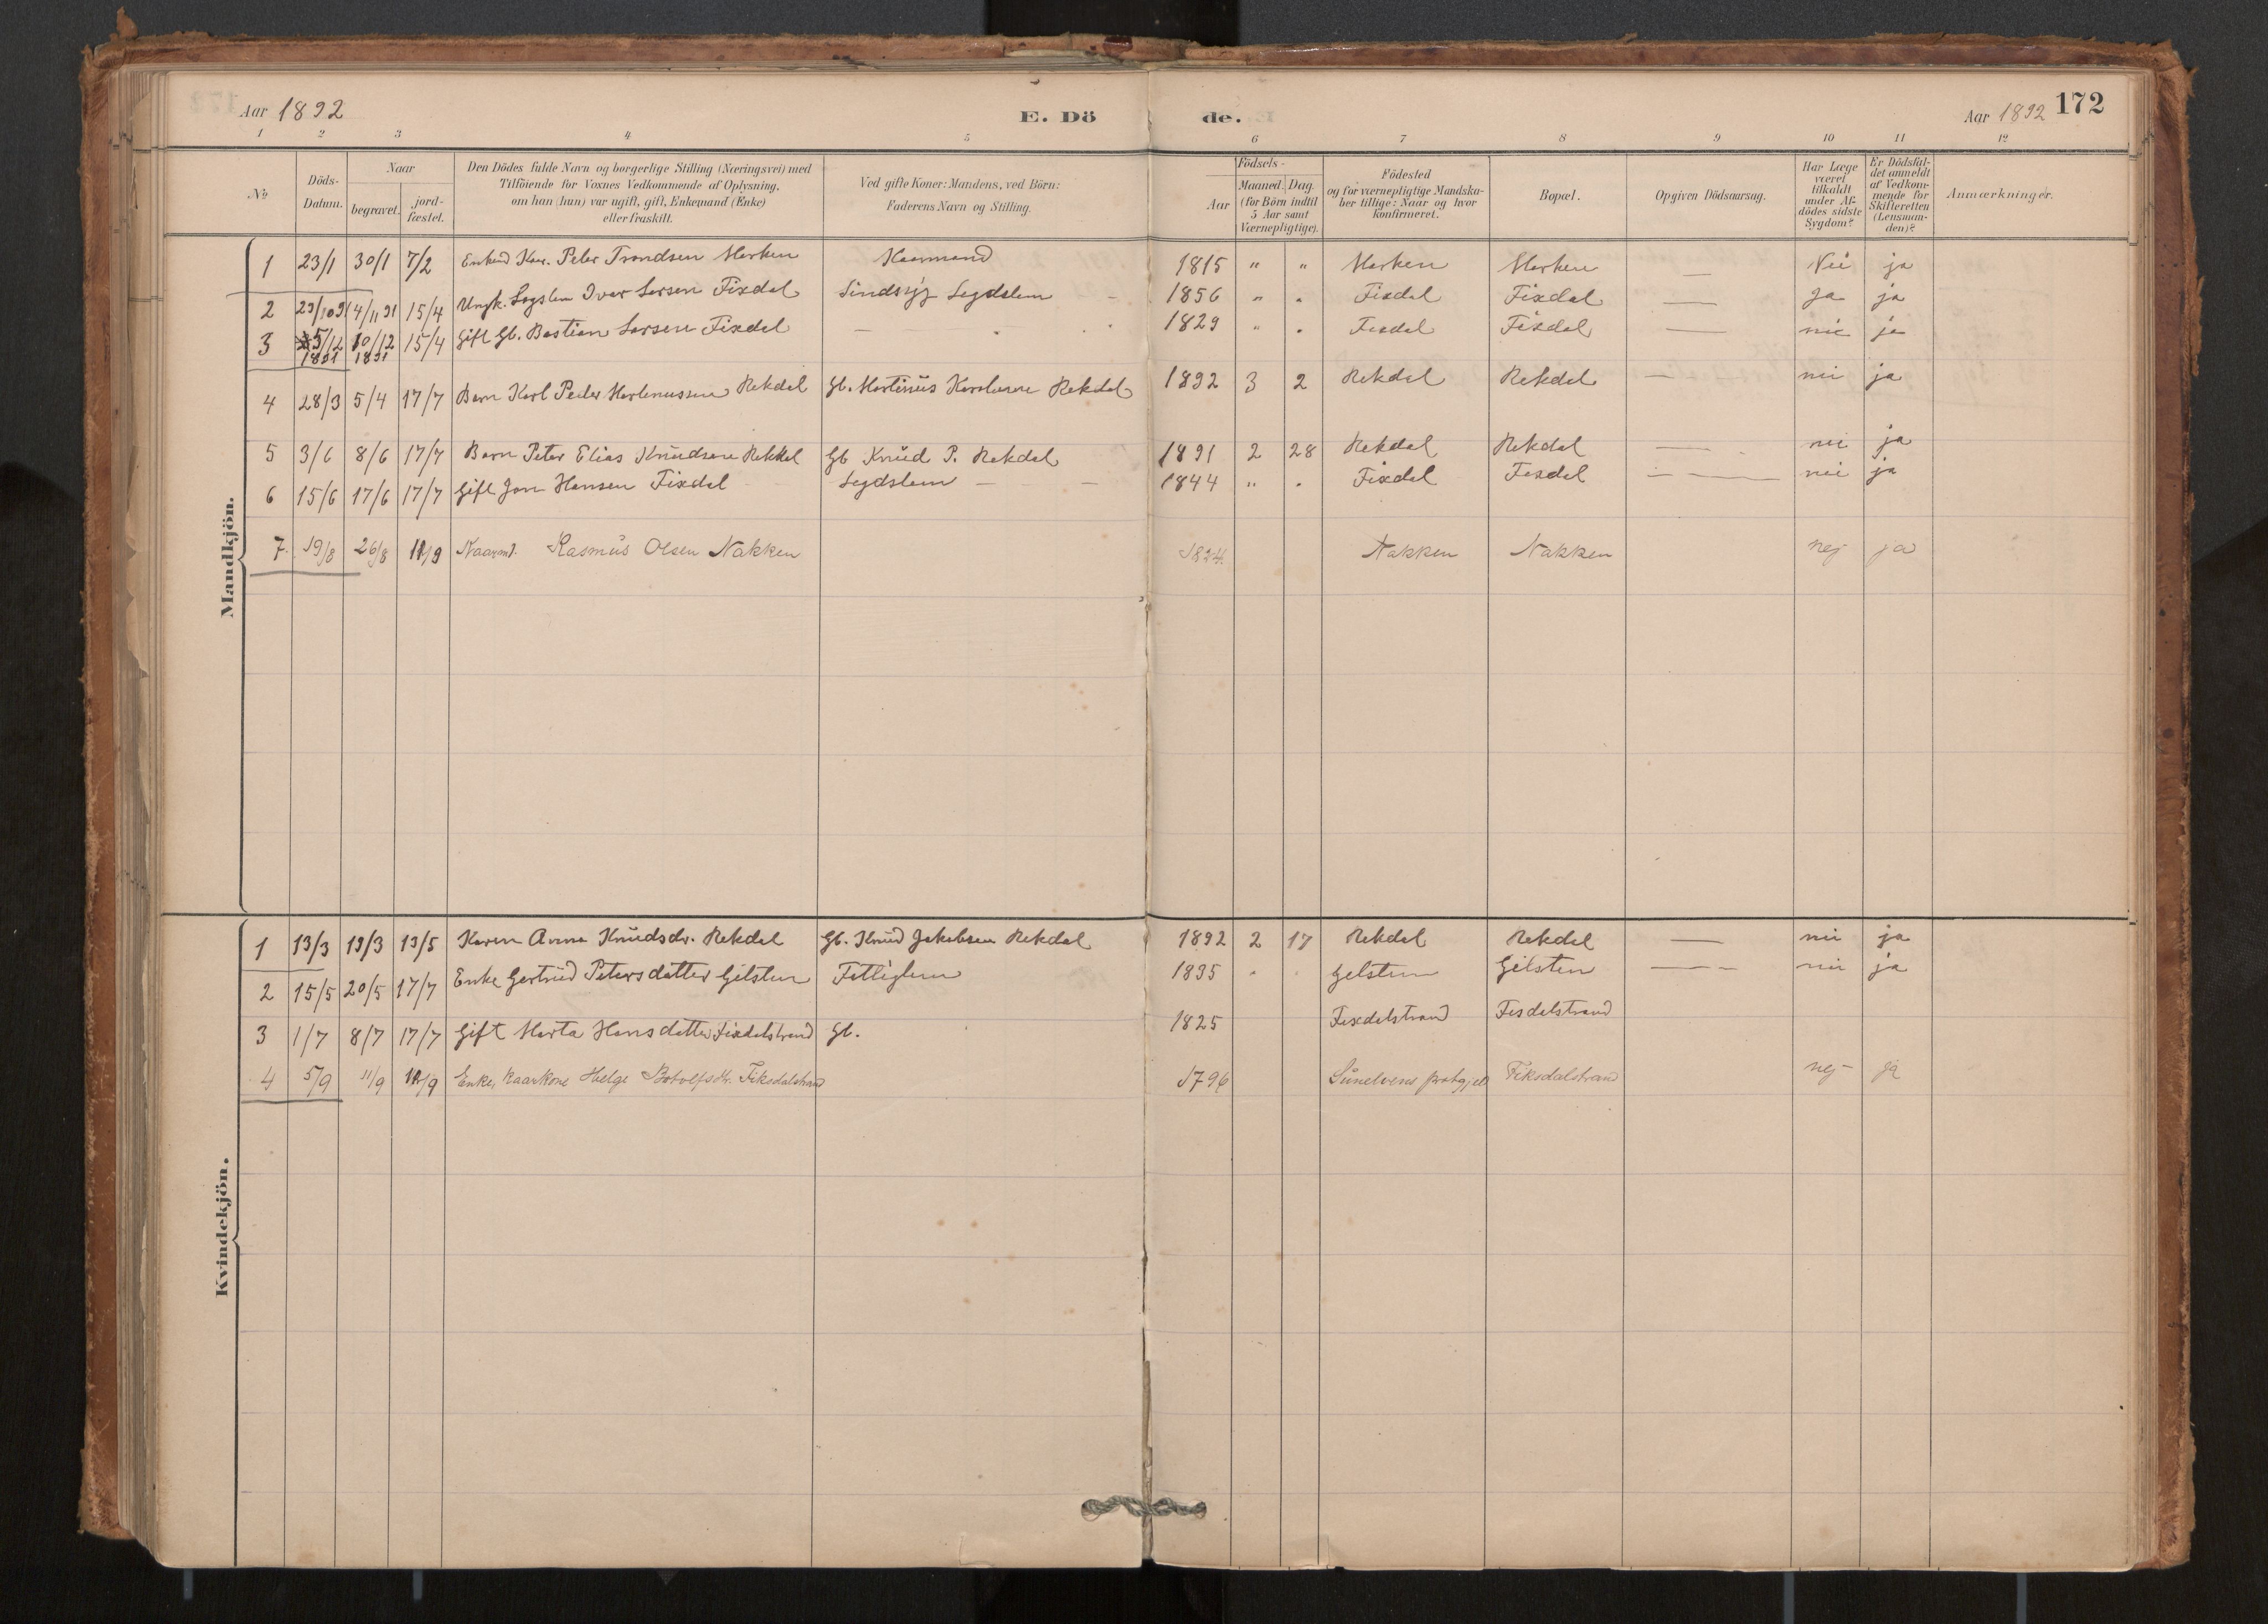 Aar 1892 E. Dö de. Aar 1892 172
1 2 3 4 5 6 7 8 9 10 11 12
No
Döds-Datum.
Naar
begravet.
jordfæstet.
Den Dödes fulde Navn og borgerlige Stilling (Næringsvei) med
Tilföiende for Voxnes Vedkommende af Oplysning,
om han (hun) var ugift, gift, Enkemand (Enke)
eller fraskilt.
Ved gifte Koner: Mandens, ved Börn:
Faderens Navn og Stilling.
Födsels-
Aar
Maaned. Dag.
(for Börn indtil
5 Aar samt
Værnepligtige).
Födested
og for værnepligtige Mandska-
ber tillige: Naar og hvor
konfirmeret.
Bopæl.
Opgiven Dödsaarsag.
Har Læge
været
tilkaldt
under Af-
dödes sidste
Sygdom?
Er Dödsfal-
det anmeldt
af Vedkom-
mende for
Skifteretten
(Lensman-
den)?
Anmærkninger.
Mandkjön.
1 23/1 30/1 7/2 Peter Trondsen Horken Kaarmand 1815 " " Horken Horken — Nei ja
2 29/10 91 4/11 91 15/4 Ungk. Iver Larsen Fixdal Sindsyg Legdslem 1856 " " Fixdal Fixdal — Ja ja
3 5/12 1891 10/12 1891 15/4 Gift Gb. Bastian Larsen Fixdal — 1829 " " Fixdal Fixdal — nei ja
4 28/3 5/4 17/7 Barn Karl Peder Martinussen Rekdal Gb. Martinus Rekdal 1892 3 2 Rekdal Rekdal — nei ja
5 3/6 8/6 17/7 Barn Peter Elias Knudsen Rekdal Gb Knud P. Rekdal 1891 2 28 Rekdal Rekdal — nei ja
6 15/6 17/6 17/7 Gift Jon Hansen Fixdal Legdslem — 1844 " " Fixdal Fixdal — nei ja
7. 19/8 26/8 11/9 Kaarmd. Rasmus Olsen Nakken 1824. Nakken Nakken nej ja
Kvindekjön.
1 13/3 19/3 13/5 Karen Anna Knudsdr. Rekdal Gb. Knud Jakobsen Rekdal 1892 2 17 Rekdal Rekdal — nei ja
2 15/5 20/5 17/7 Enke Gertrud Petersdatter Gilsten Fattiglem 1835 " Gelsten Gilsten — nei ja
3 1/7 8/7 17/7 Gift Marta Hansdatter Fixdalstrand Gb. 1825 Fixdalstrand Fisdalstrand
4 5/9 11/9 11/9 Enke, Kaarkone Helge Botolfsdtr. Fiksdalstrand 1796 Sunelvens prstgjeld Fiksdalstrand nej ja